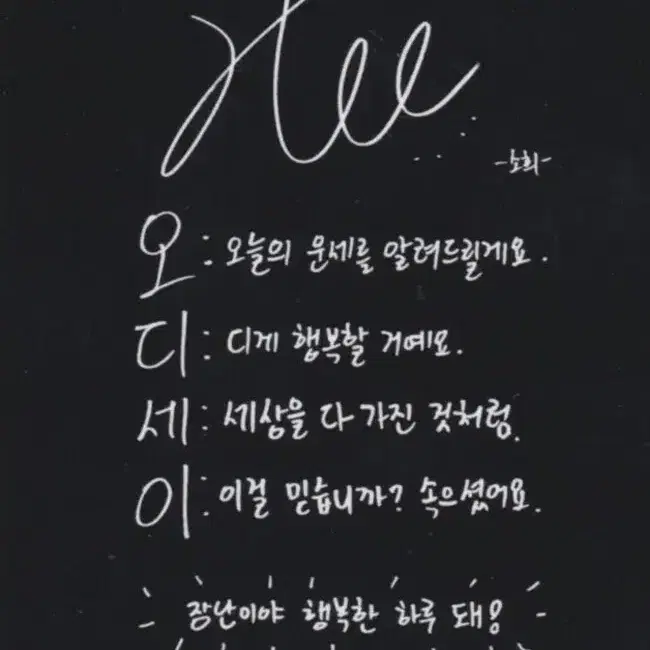 Hee
-소희-
오 : 오늘의 운세를 알려드릴게요.
디 : 디게 행복할 거예요.
세 : 세상을 다 가진 것처럼.
이 : 이걸 믿습니까? 속으셨어요.
장난이야 행복한 하루 돼!